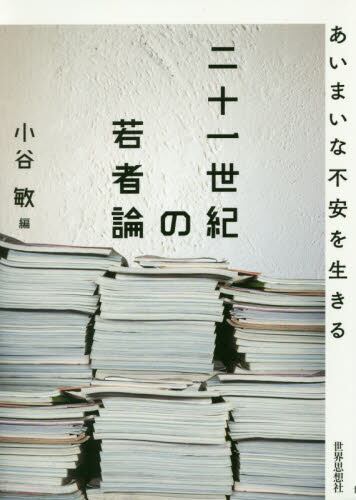 あいまいな不安を生きる
二十一世紀
の
若者論
小谷 敏 編
世界思想社